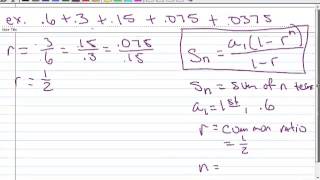 ex. .6 + .3 + .15 + .075 + .0375
r = .3/.6 = .15/.3 = .075/.15
r = 1/2
Sn = a1(1 - r^n)/1 - r
Sn = sum of n terms
a1 = 1st, .6
r = common ratio
= 1/2
n =